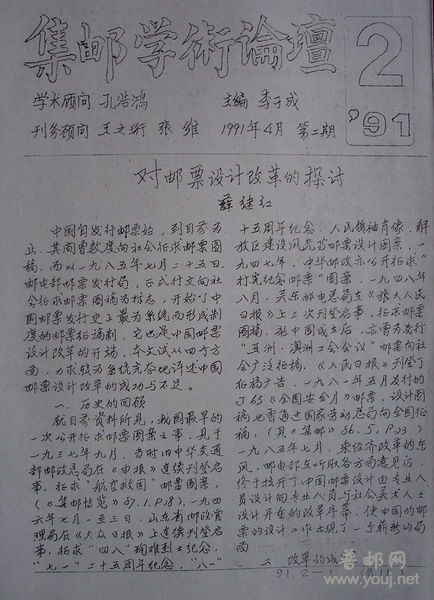 集邮学術論壇
2
'91
学术顾问 孔浩鸿 主编 李于成
刊务顾问 王文珩 张维 1991年4月 第二期
对邮票设计改革的探讨
薛继红
中国自发行邮票始,到目前为
止,其间曾数度向社会征求邮票图
稿。而以一九八五年七月二十五日,
邮电部邮票发行局,正式行文向社
会征求邮票图稿为标志,开始了中
国邮票发行史上最为系统而形成制
度的邮票征稿制。它也是中国邮票
设计改革的开端,本文试从四个方
面,力求较为系统完奋地评述中国
邮票设计改革的成功与不足。
一、历史的回顾
就目前资料所见,我国最早的
一次公开征求邮票图案之事,见于
一九三七年九月,当时旧中华交通
部邮政总局在《申报》连续刊登启
事,征求"航空救国"邮票图案,
(《集邮博览》87.1.P.18),一九四
六年七月一至三日,山东省邮政管
理局在《大众日报》上连续刊登启
事,征求"四八"殉难烈士纪念,
"七一"二十五周年纪念,"八一"
十五周年纪念、人民领袖肖像、解
放区建设风光等邮票设计图案,一
九四七年,中华邮政亦公开征求"
行宪纪念邮票"图案,一九四八年
八月,关东邮电总局在《旅大人民
日报》上三次刊登启事,征求邮票
图稿。新中国成立后,亦曾为发行
"亚洲、澳洲工会会议"邮票向社
会广泛征稿,《人民日报》刊登了
征稿广告。一九八一年五月发行的
J65《全国安全月》邮票,设计图
稿也曾通过国家劳动总局向全国征
稿,(见《集邮》86.5.P.23)
一九八五年七月,乘经济改革的东
风,邮电部在听取各方面意见后,
终于拉开了中国邮票设计由专业人
员设计向专业人员与社会美术人士
设计并举的改革序幕,使中国的邮
票的设计工作出现了一个崭新的局
面
二、改革的成
91.2-1
普邮网
www.youj.net